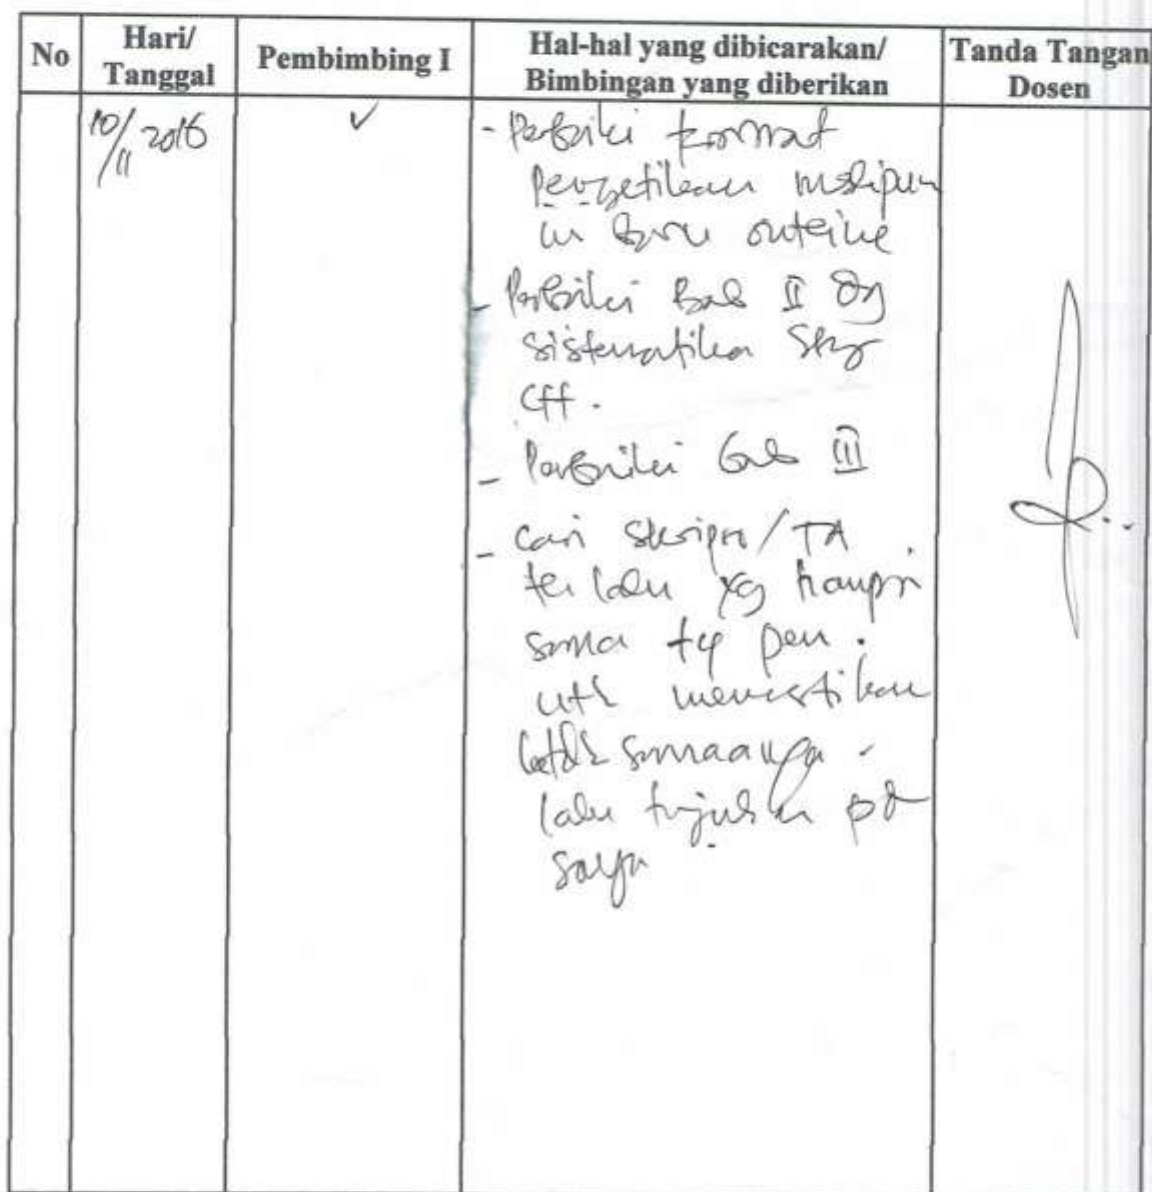 No
Hari/
Tanggal
Pembimbing I
Hal-hal yang dibicarakan/
Bimbingan yang diberikan
Tanda Tangan
Dosen
10/11 2016
✓
- Perbaiki format
pengetikan meskipun
ini baru outline
- Perbaiki Bab II dg
sistematika
- Perbaiki bab III
- Cari skripsi/TA
terlalu yg hampir
sama ttg pen.
utk memastikan
lalu tunjukkan pd
saya